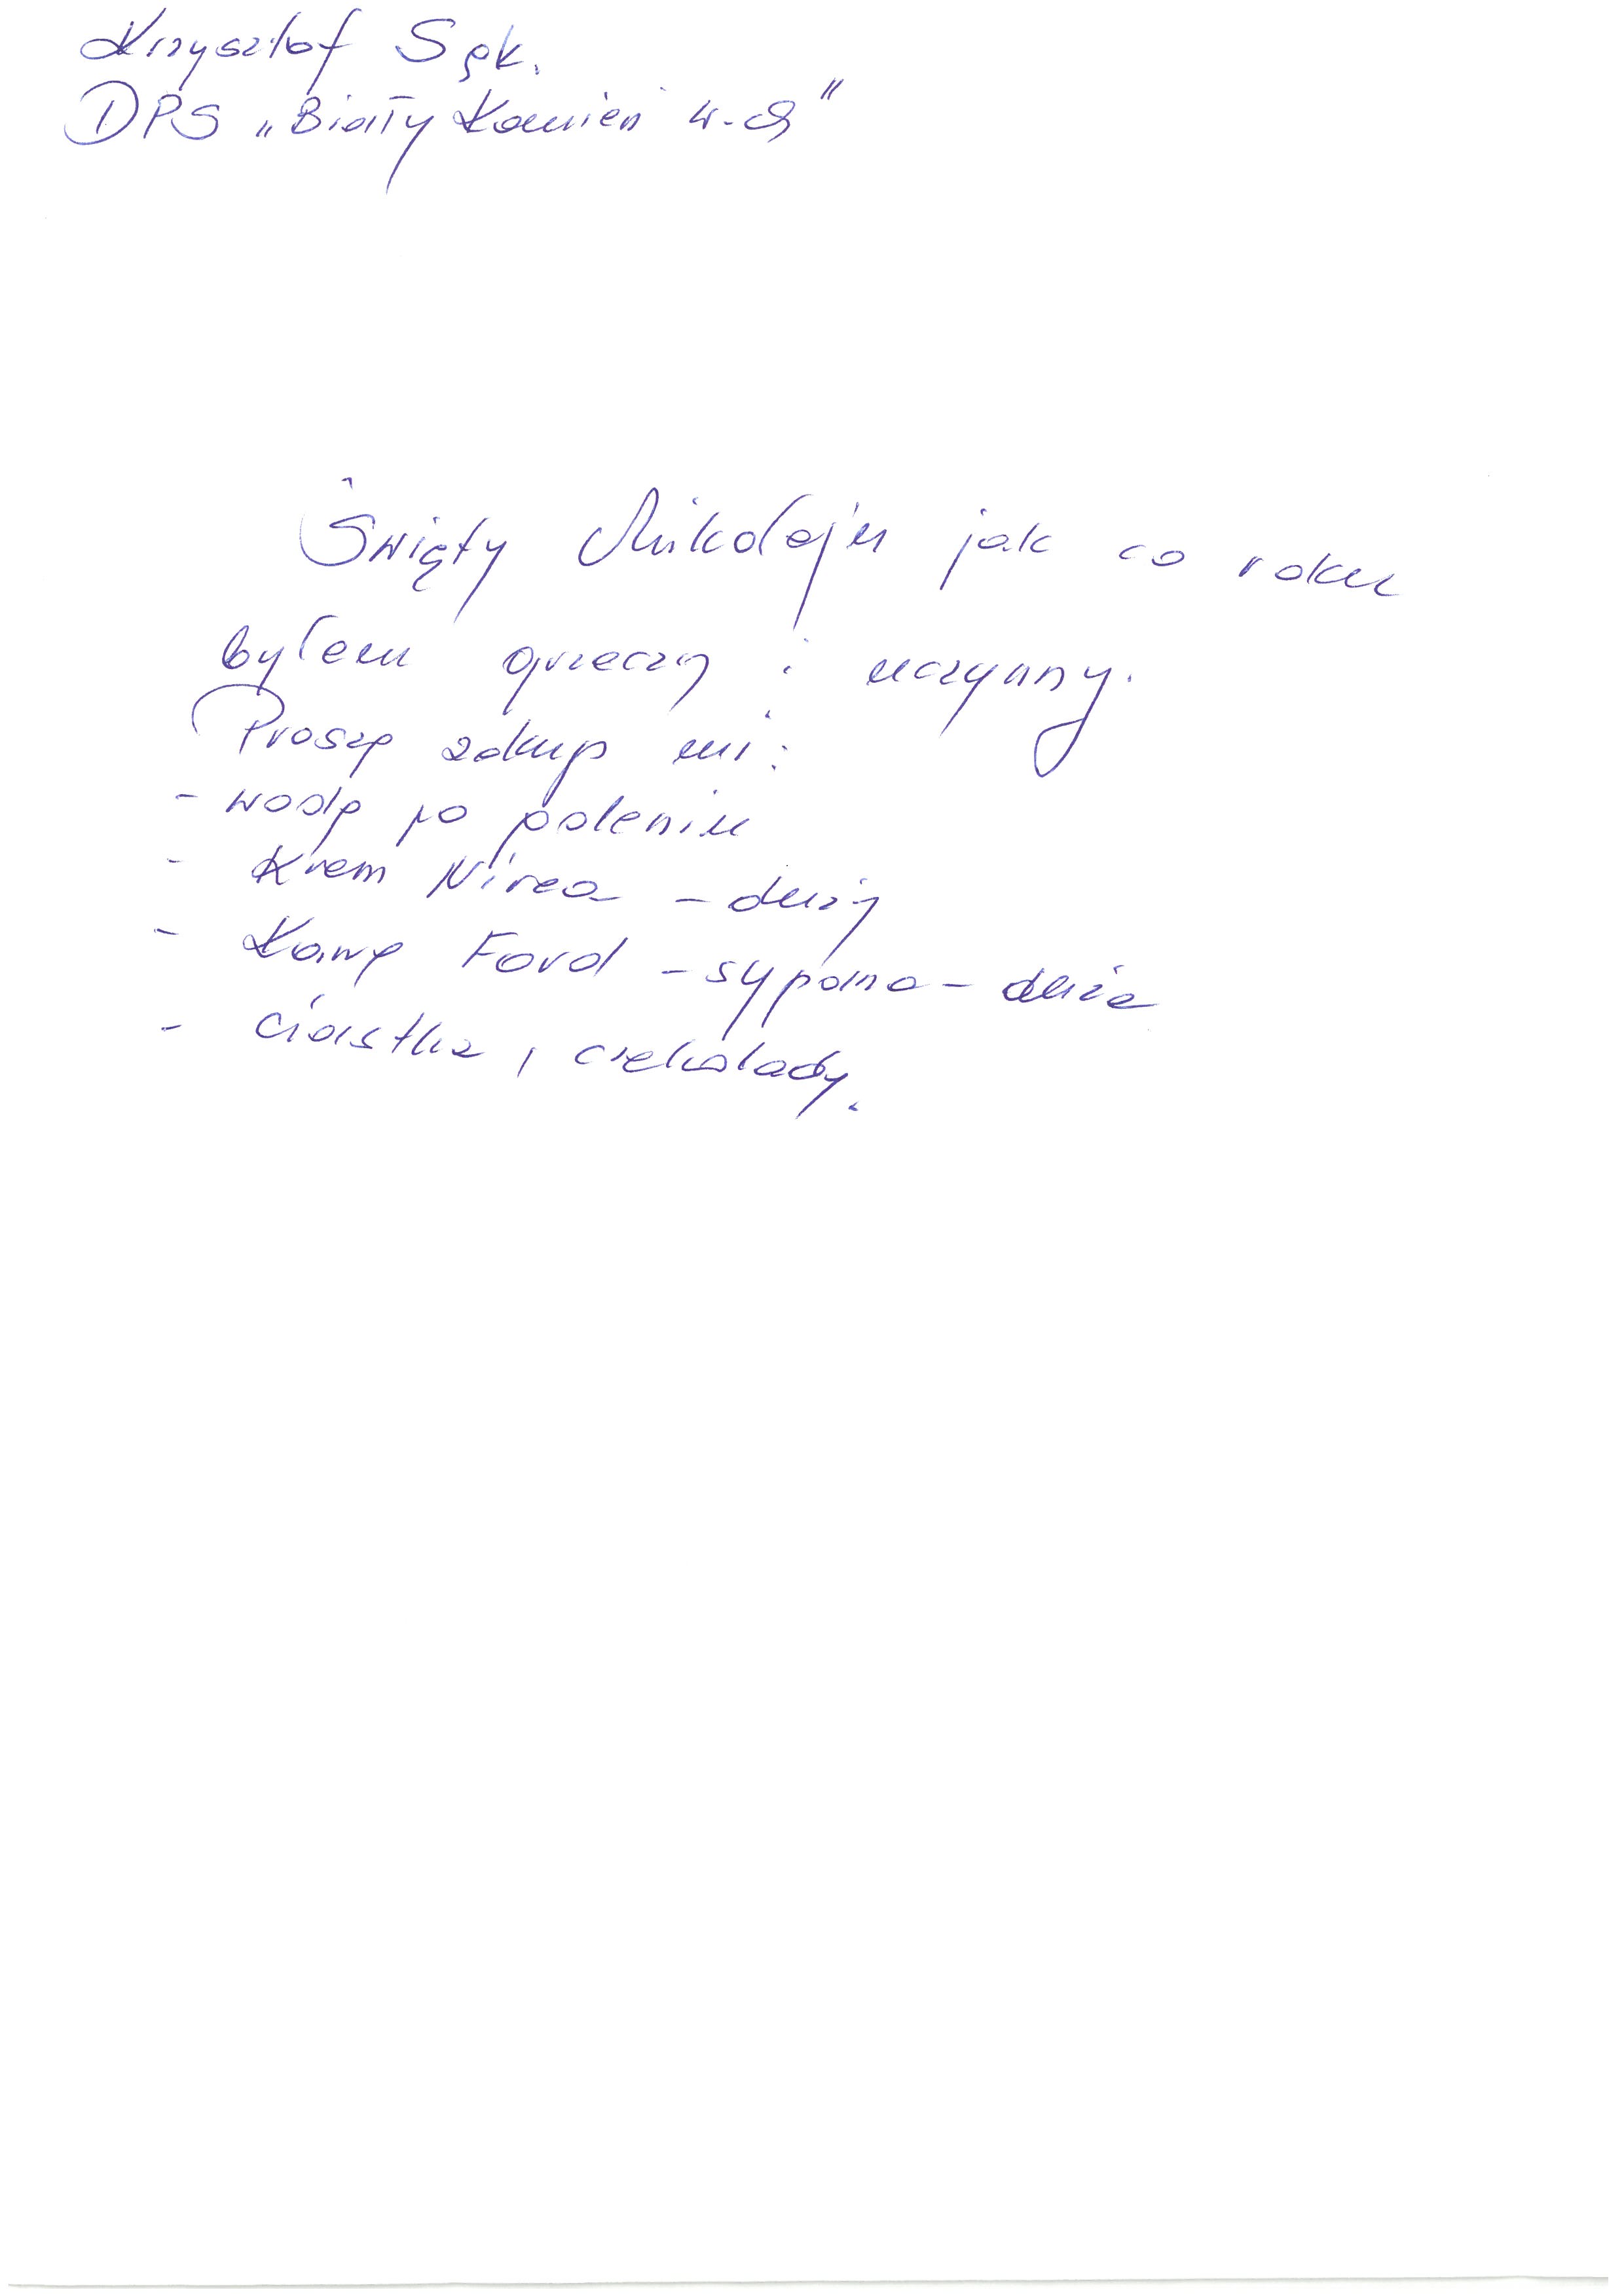 Krzysztof Sęk.
DPS „Biały Kamień W-ch"
Święty Mikołaju jak co roku
byłem grzeczny i uczynny.
Proszę zakup mi:
- wodę po goleniu
- Krem Nivea - duży
- Kawę Ford - sypana - duża
- ciastka, czekolady.